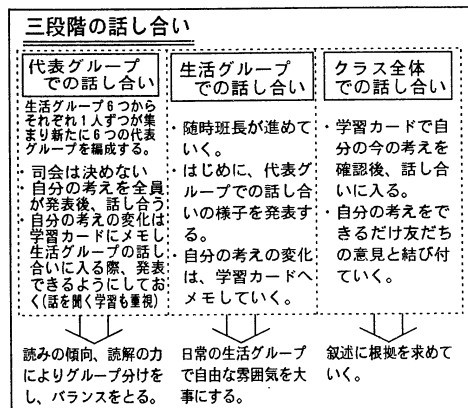 三段階の話し合い
代表グループ
での話し合い
生活グループ6つから
それぞれ1人ずつが集
まり新たに6つの代表
グループを編成する。
・司会は決めない
・自分の考えを全員
が発表後、話し合う
・自分の考えの変化は
学習カードにメモし
生活グループの話し
合いに入る際、発表
できるようにしてお
く(話を聞く学習も重視)
読みの傾向、読解の力
によりグループ分けを
し、バランスをとる。
生活グループ
での話し合い
・随時班長が進めて
いく。
・はじめに、代表グ
ループでの話し合
いの様子を発表す
る。
・自分の考えの変化
は、学習カードへ
メモしていく。
日常の生活グループ
で自由な雰囲気を大
事にする。
クラス全体
での話し合い
・学習カードで自
分の今の考えを
確認後、話し合
いに入る。
・自分の考えをで
きるだけ友だち
の意見と結び付
ていく。
叙述に根拠を求めて
いく。